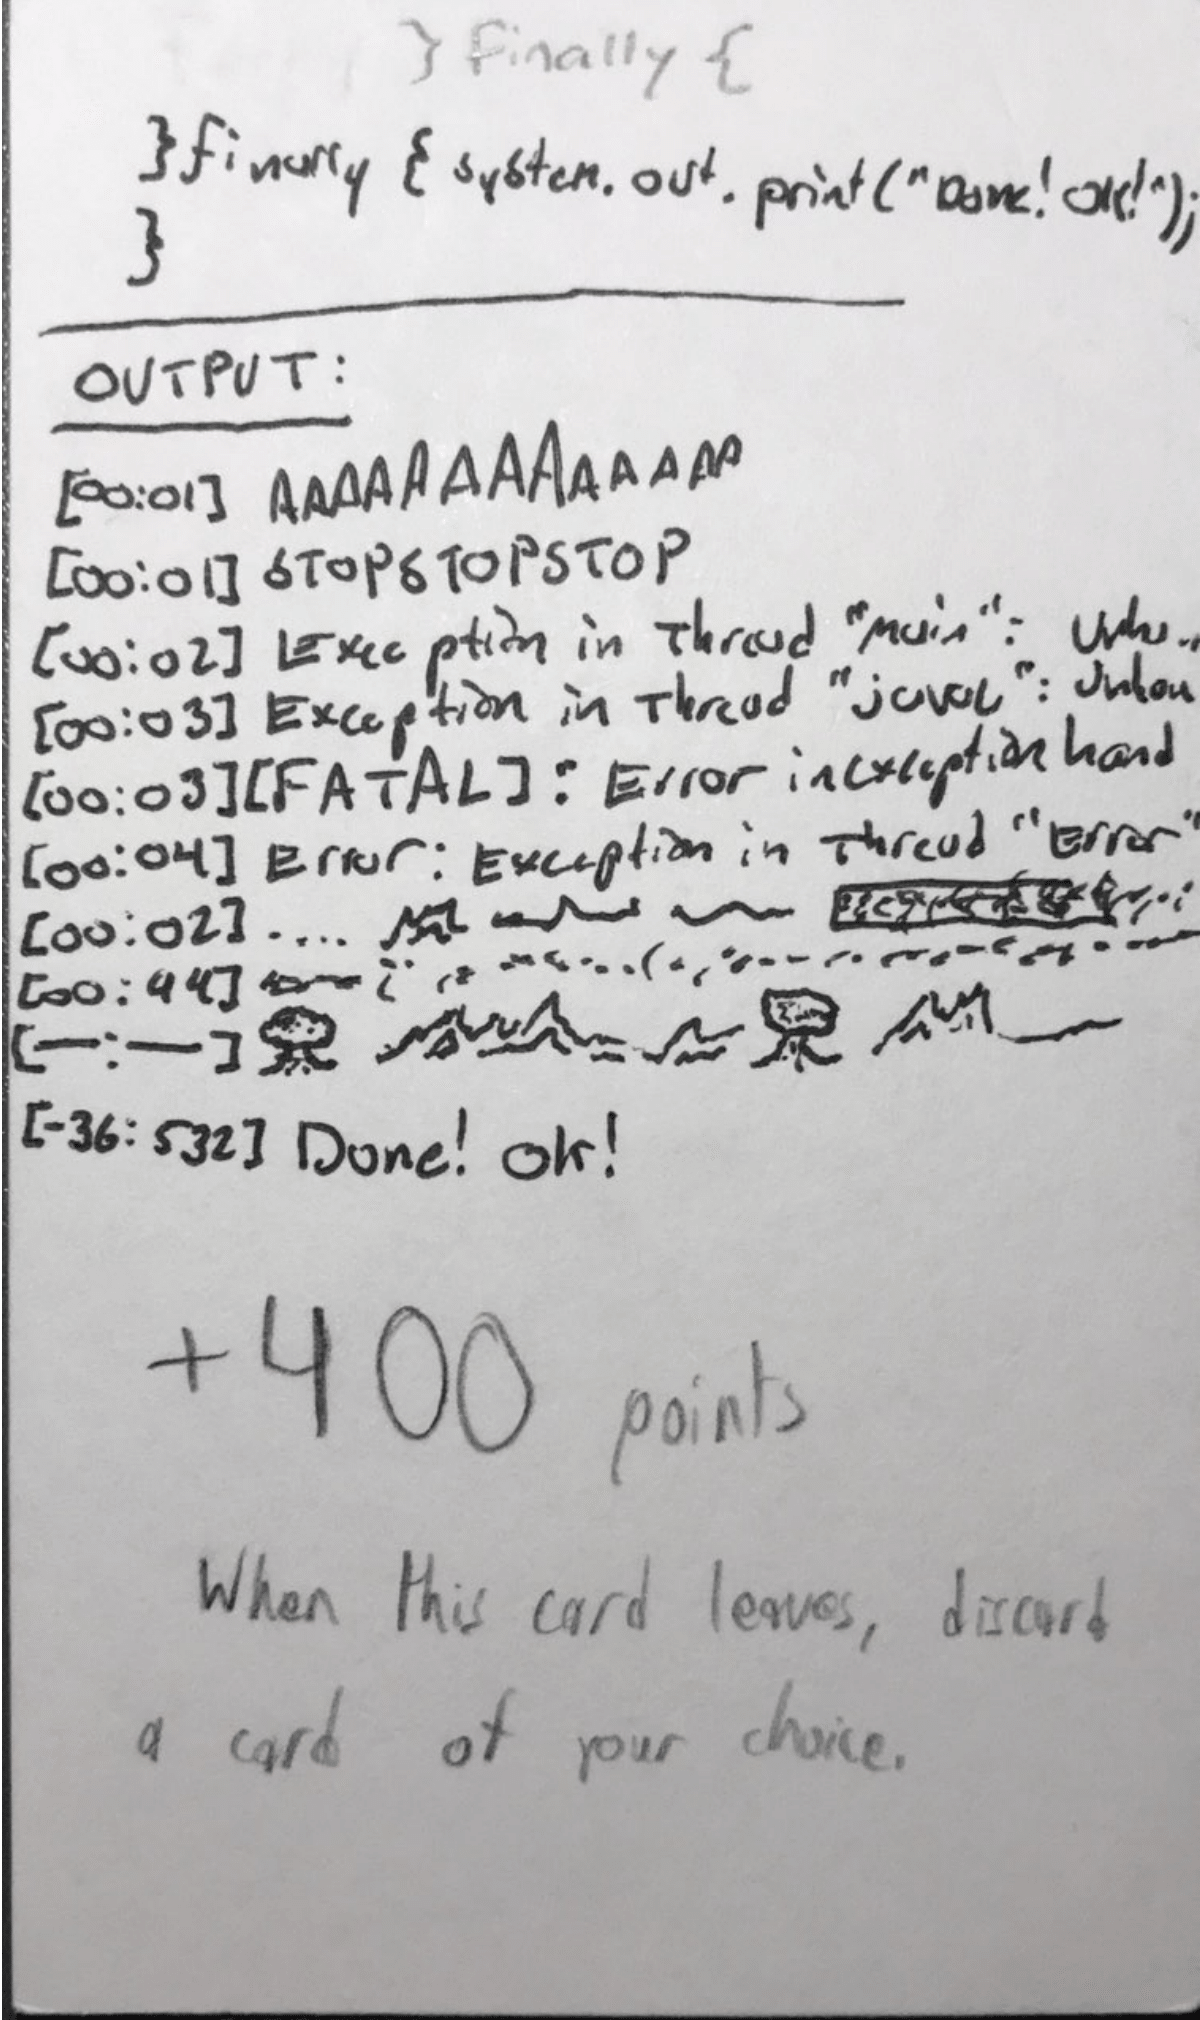 } finally {
}finally { system.out.print("Done! Ok!");
}
OUTPUT:
[00:01] AAAAAAAAAAAAA
[00:01] STOPSTOPSTOP
[00:02] Exception in Thread "main": Unha..
[00:03] Exception in Thread "java": Unhan
[00:03][FATAL]: Error in exception hand
[00:04] Error: Exception in Thread "Error"
[00:02] ....
[00:44]
[—:—]
[-36:532] Done! ok!
+400 points
When this card leaves, discard
a card of your choice.